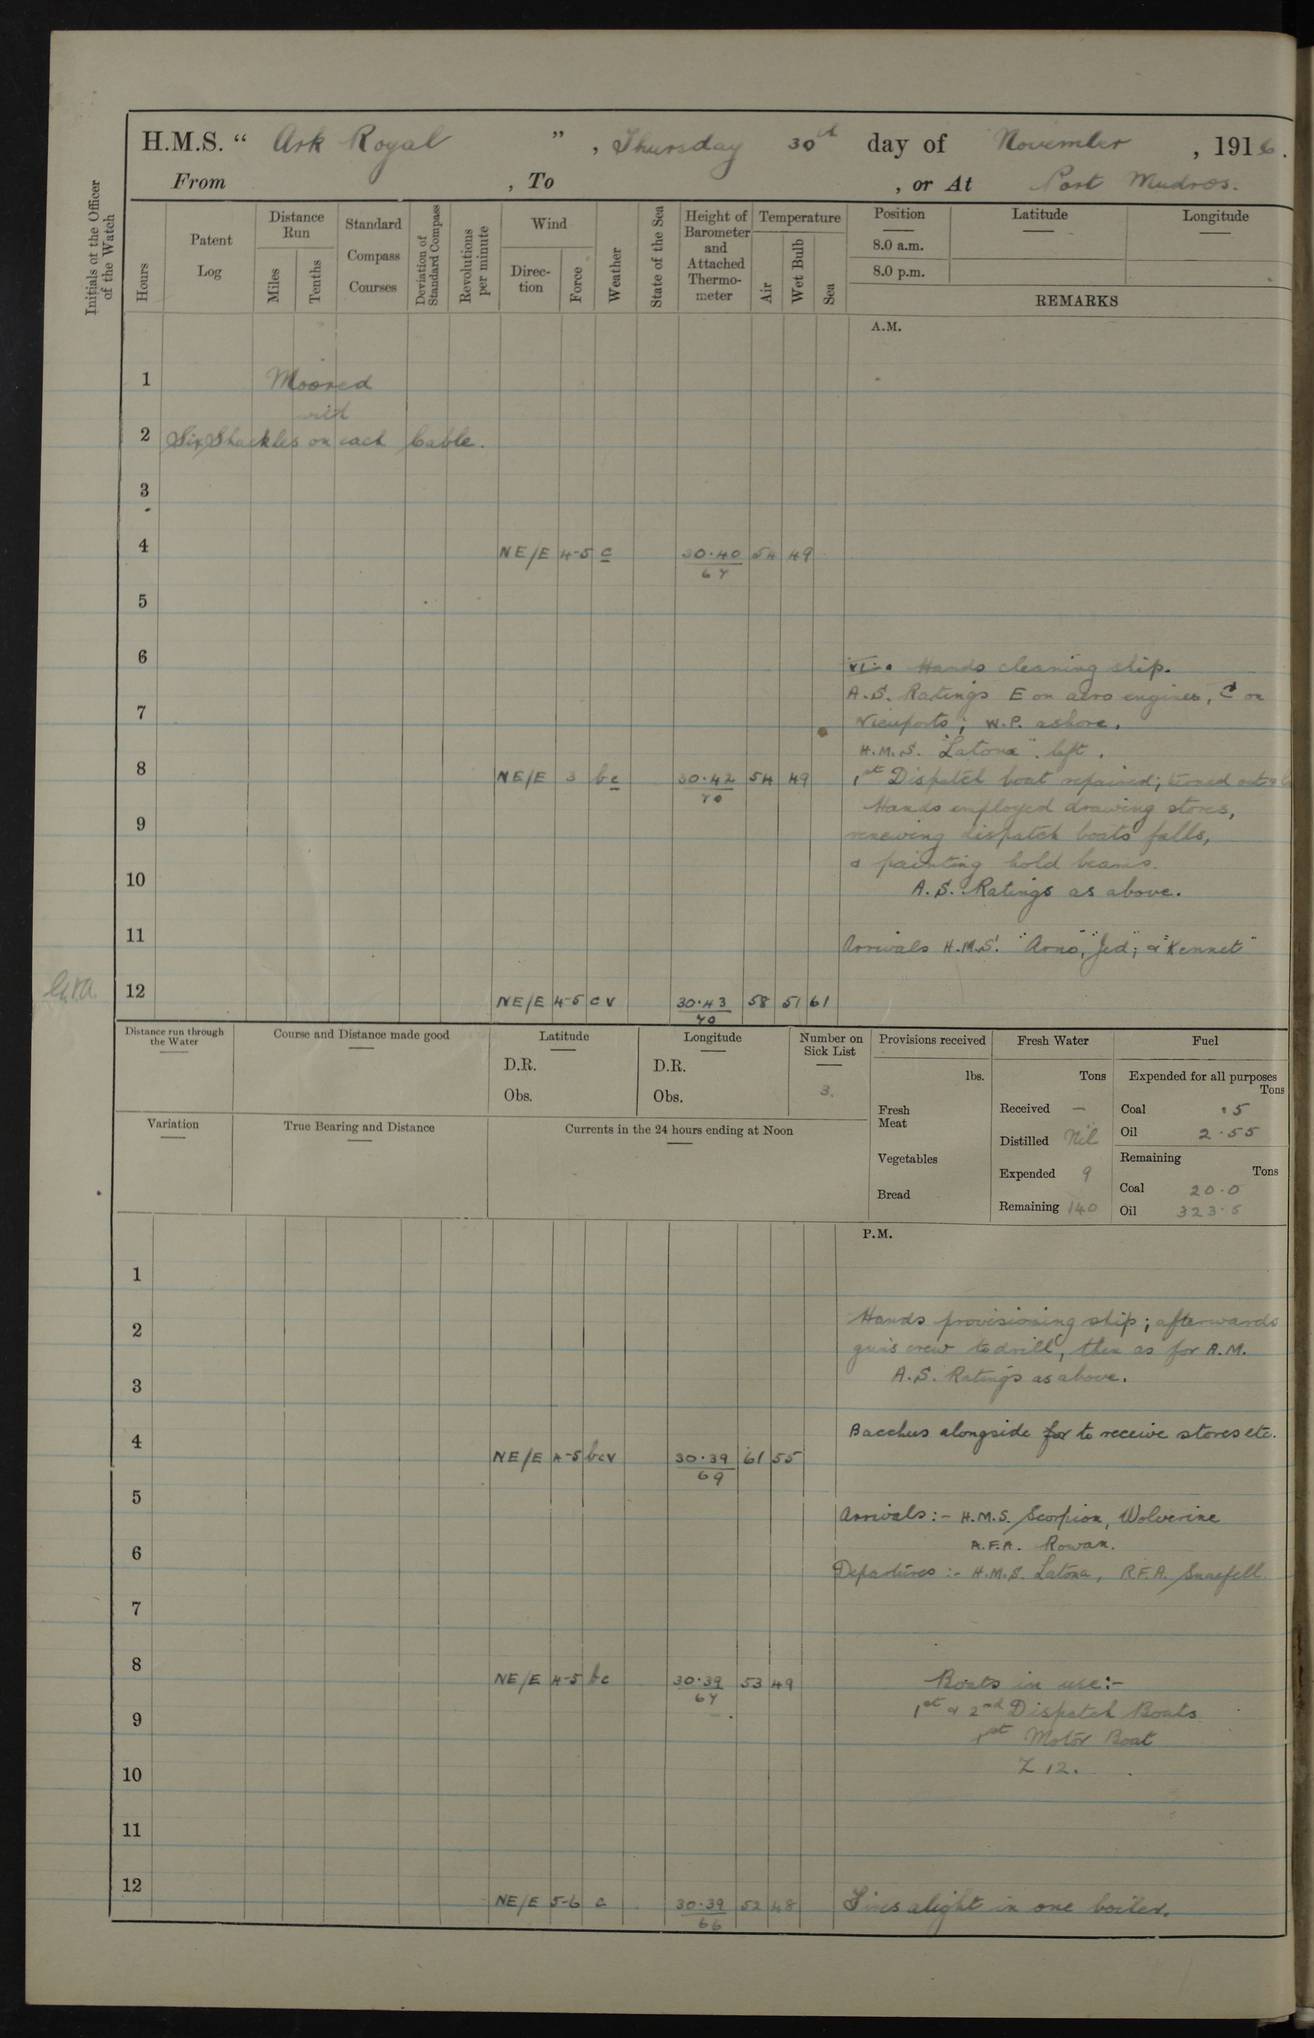 H.M.S. " Ark Royal ", Thursday 30th day of November, 1916.
From , To , or At Port Mudros.
Initials of the Officer of the Watch
Hours
Patent Log
Distance Run
Miles
Tenths
Standard Compass Courses
Deviation of Standard Compass
Revolutions per minute
Wind
Direc-tion
Force
Weather
State of the Sea
Height of Barometer and Attached Thermo-meter
Temperature
Air
Wet Bulb
Sea
Position
8.0 a.m.
8.0 p.m.
Latitude
Longitude
REMARKS
A.M.
1 Moored
with
2 Six Shackles on each Cable.
3
4 NE/E 4-5 c 30.40 54 49
67
5
6
Hands cleaning ship.
A.S. Ratings E on aero engines, C on
7 Nieuports; W.P. ashore.
H.M.S. "Latona" left.
8 NE/E 3 bc 30.42 54 49 1st Dispatch boat repaired; turned out
70
Hands employed drawing stores,
9 renewing dispatch boats falls,
& painting hold beams.
10 A.S. Ratings as above.
11 Arrivals H.M.S. "Arno," "Jed", & "Kennet"
12 NE/E 4-5 cv 30.43 58 51 61
70
Distance run through the Water
Course and Distance made good
Latitude
D.R.
Obs.
Longitude
D.R.
Obs.
Number on Sick List
3.
Provisions received
lbs.
Fresh Meat
Vegetables
Bread
Fresh Water
Tons
Received —
Distilled Nil
Expended 9
Remaining 140
Fuel
Expended for all purposes
Tons
Coal .5
Oil 2.55
Remaining
Tons
Coal 20.0
Oil 323.5
Variation
True Bearing and Distance
Currents in the 24 hours ending at Noon
P.M.
1
2 Hands provisioning ship; afterwards
guns crew to drill, then as for A.M.
3 A.S. Ratings as above.
4 Bacchus alongside for to receive stores etc.
NE/E 4-5 bcv 30.39 61 55
69
5
Arrivals :- H.M.S. Scorpion, Wolverine
6 A.F.A. Rowan.
Departures :- H.M.S. Latona, R.F.A. Snaefell.
7
8 NE/E 4-5 bc 30.39 53 49 Boats in use:-
67
9 1st & 2nd Dispatch Boats
1st Motor Boat
10 Z 12.
11
12 NE/E 5-6 c 30.39 52 48 Fires alight in one boiler.
66